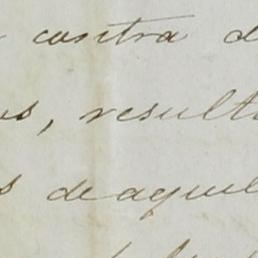 contra d
os, result
s deaquel